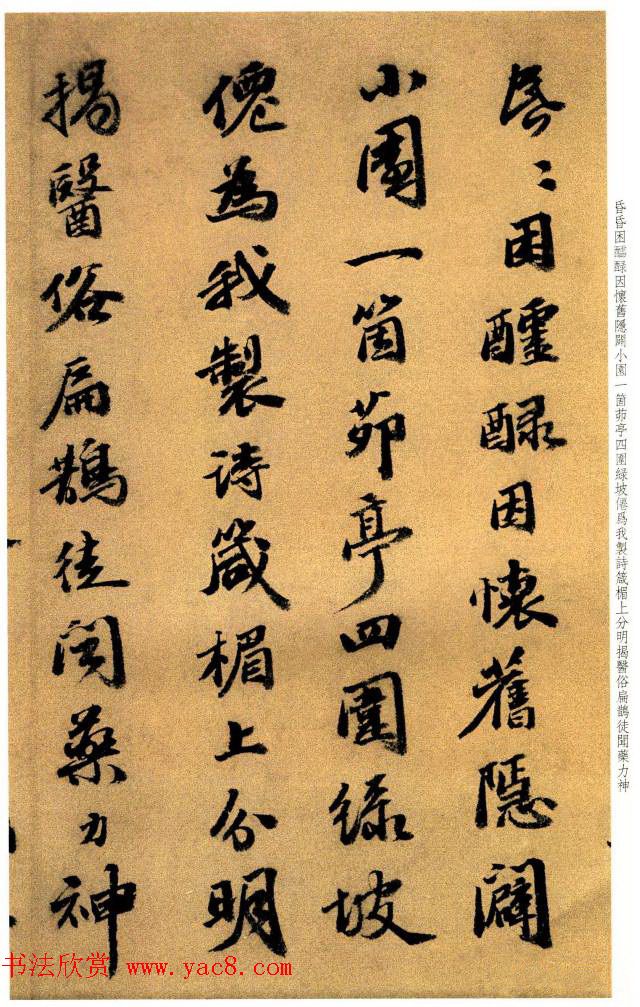 昏〻困醺醁因懷舊隱闢
小園一箇茆亭四圍綠坡
僊為我製詩箴楣上分明
揭醫俗扁鵲徒聞藥力神
昏昏困醺醁因懷舊隱闢小園一箇茆亭四圍綠坡僊爲我製詩箴楣上分明揭醫俗扁鵲徒聞藥力神
书法欣赏 www.yac8.com